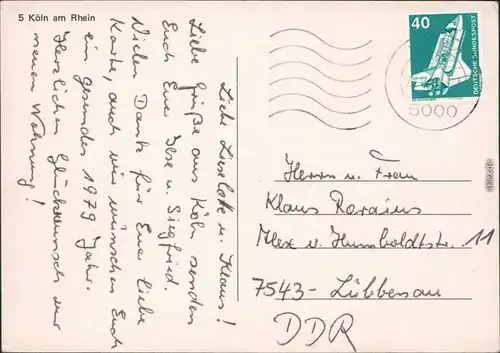 5 Köln am Rhein
Liebe Lieselotte u. Klaus!
Liebe Grüße aus Köln senden
Euch Eure Ilse u. Siegfried.
Vielen Dank für Eure liebe
Karte, auch wir wünschen Euch
ein gesundes 1979 Jahr.
Herzlichen Glückwunsch zur
neuen Wohnung!
40
DEUTSCHE BUNDESPOST
5000
Herrn u. Frau
Klaus Rorains
Alex v. Humboldtstr. 11
7543- Lübbenau
DDR